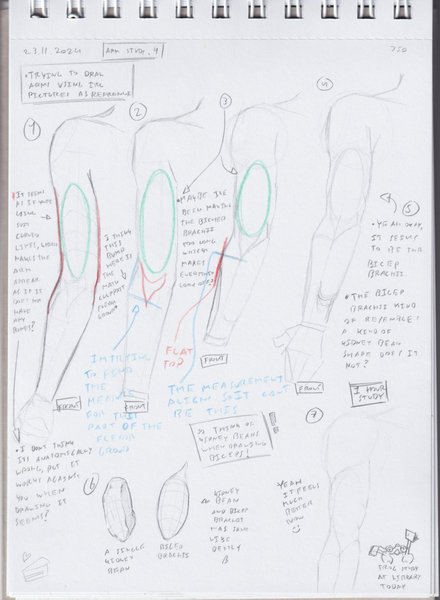 23.11.2024
ARM STUDY. 4
750
• TRYING TO DRAW
ARM USING THE
PICTURES AS REFERENCE
1
2
3
4
5
IT SEEMS
AS IF
LINE
JUST
CURVED
LIKES, WHICH
MAKES THE
ARM
APPEAR
AS IF IT
DOES NOT
HAVE
ANY
BONES!
I THINK
THIS
BUMP
HERE IS
THE
MAIN
CULPRIT
FLEXOR
GROUP
• MAYBE I'VE
BEEN MAKING
THE BICEPS
BRACHII
TOO LONG
WHICH
MAKES
EVERYTHING
LONG
• YEAH OKAY,
IT SEEMS
TO BE THE
BICEP
BRACHII
• THE BICEP
BRACHII KIND
OF RESEMBLE
A KIND OF
KIDNEY BEAN
SHAPE DOES IT
NOT?
1 HOUR
STUDY
FRONT
FRONT
FRONT
FRONT
FLAT
TO?
I'M TRYING
TO FIND
THE
MEASURE
FOR THIS
PART OF THE
FLEXOR
GROUP
THE MEASUREMENT
ALIGN SO IT CAN'T
BE THIS
SO THINK OF
KIDNEY BEANS
WHEN DRAWING
BICEPS!
• I DON'T THINK
IT'S ANATOMICALLY
WRONG, BUT IT
WORKS AGAINST
YOU WHEN
DRAWING IT
SEEMS!
6
A SINGLE
KIDNEY
BEAN
BICEP
BRACHII
KIDNEY
BEAN
AND BICEP
BRACHII
HAS
LIKE
7
YEAH
IT FEELS
MUCH
BETTER
NOW
STUDY
AT LIBRARY
TODAY